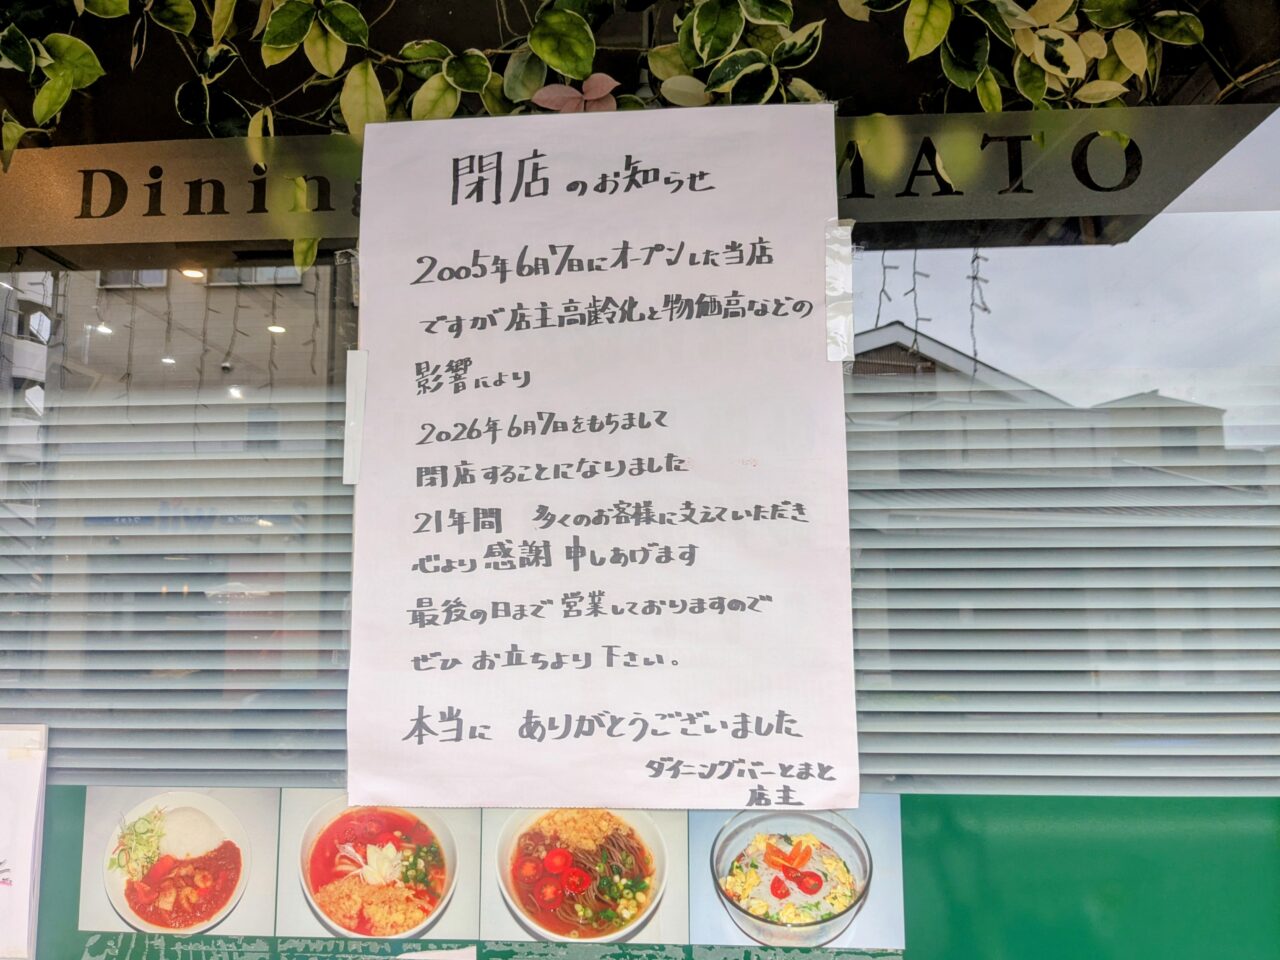 Dining
MATO
閉店のお知らせ
2005年6月7日にオープンした当店
ですが店主高齢化と物価高などの
影響により
2026年6月7日をもちまして
閉店することになりました
21年間 多くのお客様に支えていただき
心より感謝申しあげます
最後の日まで営業しておりますので
ぜひ お立ちより下さい。
本当に ありがとうございました
ダイニングバーとまと
店主